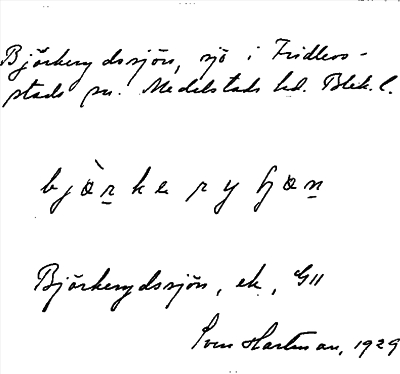 Björkerydssjön, sjö i Fridlevs-
stads sn. Medelstads hd. Blek. l.
bjòrke ryʃɵn
Björkerydssjön, ek, G11
Sven Hartman, 1929